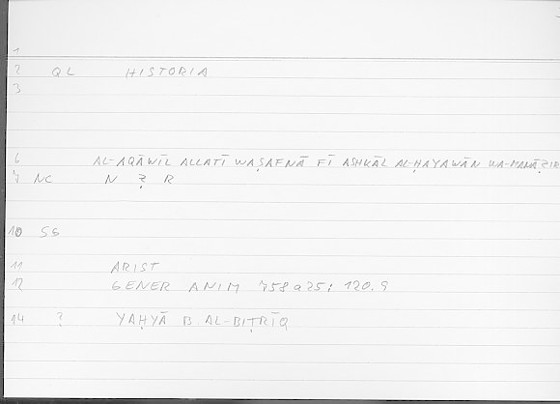 1
2 QL HISTORIA
3
6 AL-AQĀWĪL ALLATĪ WAṢAFNĀ FĪ ASHKĀL AL-ḤAYAWĀN WA-MANĀẒIR
7 NC N Ẓ R
10 SS
11 ARIST
12 GENER ANIM 758a25; 120.9
14 ? YAḤYĀ B AL-BIṬRĪQ